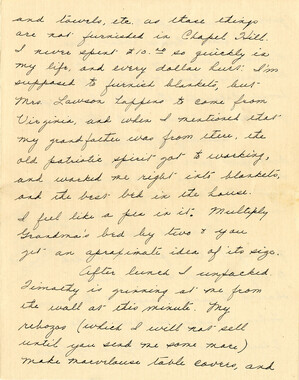 and towels, etc. as those things
are not furnished in Chapel Hill.
I never spent $10.00 so quickly in
my life, and every dollar hurt. I'm
supposed to furnish blankets, but
Mrs. Lawson happins to come from
Virginia, and when I mentioned that
my grandfather was from there, the
old patriotic spirit got to working,
and worked me right into blankets,
and the best bed in the house.
I feel like a pea in it. Multiply
Grandma's bed by two & you
get an aproximate idea of its size.
After lunch I unpacked.
Timothy is grinning at me from
the wall at this minute. My
rebozos (which I will not sell
until you send me some more)
make marvilouse table covers, and